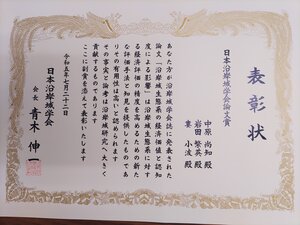 表彰状
日本沿岸域学会論文賞
中原 尚知 殿
岩田 繁英 殿
婁 小波 殿
あなた方が沿岸域学会誌に発表された
論文「沿岸域生態系の経済価値と認知
度による影響」は沿岸域生態系に対す
る経済評価の精度を高めるための新た
な評価手法と知見を提供したものであ
りその有用性は高いと認められます
その事実と論考は沿岸域研究へ大きく
貢献するものであります
ここに副賞を添えて表彰いたします
令和五年七月二十二日
日本沿岸域学会
会長 青木 伸一